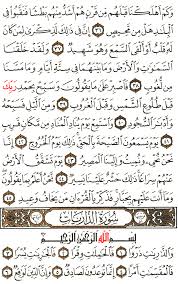 وَكَمْ أَهْلَكْنَا قَبْلَهُم مِّن قَرْنٍ هُمْ أَشَدُّ مِنْهُم بَطْشًا فَنَقَّبُوا فِي
الْبِلَادِ هَلْ مِن مَّحِيصٍ ٣٦ إِنَّ فِي ذَٰلِكَ لَذِكْرَىٰ لِمَن كَانَ
لَهُ قَلْبٌ أَوْ أَلْقَى السَّمْعَ وَهُوَ شَهِيدٌ ٣٧ وَلَقَدْ خَلَقْنَا
السَّمَاوَاتِ وَالْأَرْضَ وَمَا بَيْنَهُمَا فِي سِتَّةِ أَيَّامٍ وَمَا مَسَّنَا
مِن لُّغُوبٍ ٣٨ فَاصْبِرْ عَلَىٰ مَا يَقُولُونَ وَسَبِّحْ بِحَمْدِ رَبِّكَ
قَبْلَ طُلُوعِ الشَّمْسِ وَقَبْلَ الْغُرُوبِ ٣٩ وَمِنَ اللَّيْلِ فَسَبِّحْهُ
وَأَدْبَارَ السُّجُودِ ٤٠ وَاسْتَمِعْ يَوْمَ يُنَادِ الْمُنَادِ مِن مَّكَانٍ قَرِيبٍ
٤١ يَوْمَ يَسْمَعُونَ الصَّيْحَةَ بِالْحَقِّ ذَٰلِكَ يَوْمُ الْخُرُوجِ ٤٢
إِنَّا نَحْنُ نُحْيِي وَنُمِيتُ وَإِلَيْنَا الْمَصِيرُ ٤٣ يَوْمَ تَشَقَّقُ الْأَرْضُ
عَنْهُمْ سِرَاعًا ذَٰلِكَ حَشْرٌ عَلَيْنَا يَسِيرٌ ٤٤ نَّحْنُ أَعْلَمُ بِمَا يَقُولُونَ
وَمَا أَنتَ عَلَيْهِم بِجَبَّارٍ فَذَكِّرْ بِالْقُرْآنِ مَن يَخَافُ وَعِيدِ ٤٥
سُورَةُ الذَّارِيَاتِ
بِسْمِ اللَّهِ الرَّحْمَٰنِ الرَّحِيمِ
وَالذَّارِيَاتِ ذَرْوًا ١ فَالْحَامِلَاتِ وِقْرًا ٢ فَالْجَارِيَاتِ يُسْرًا ٣
فَالْمُقَسِّمَاتِ أَمْرًا ٤ إِنَّمَا تُوعَدُونَ لَصَادِقٌ ٥ وَإِنَّ الدِّينَ لَوَاقِعٌ ٦